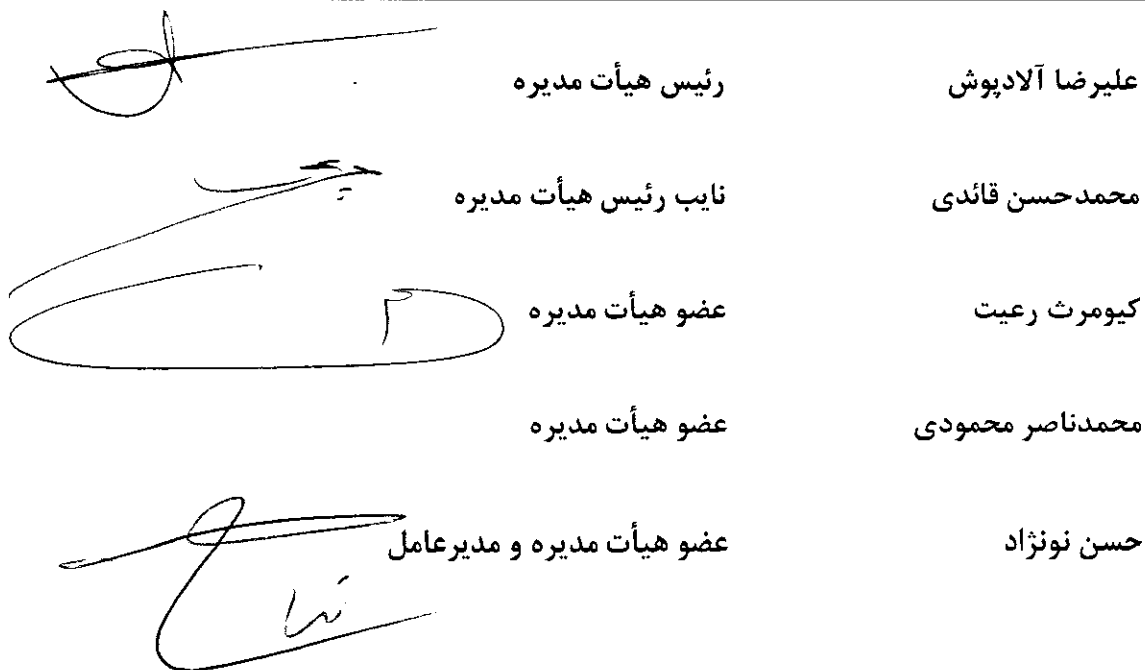 علیرضا آلادپوش رئیس هیأت مدیره
محمدحسن قائدی نایب رئیس هیأت مدیره
کیومرث رعیت عضو هیأت مدیره
محمدناصر محمودی عضو هیأت مدیره
حسن نونژاد عضو هیأت مدیره و مدیرعامل